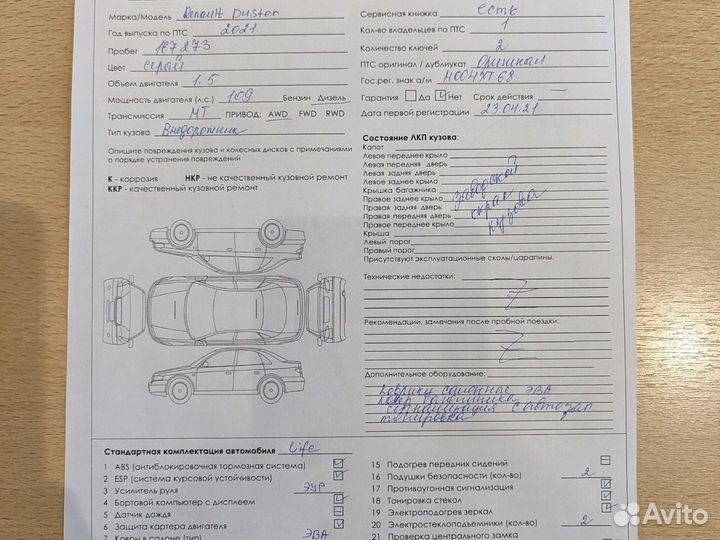 Марка/Модель Renault Duster
Год выпуска по ПТС 2021
Пробег 167 273
Цвет серый
Объем двигателя 1.5
Мощность двигателя (л.с.) 109 Бензин Дизель
Трансмиссия МТ ПРИВОД: AWD FWD RWD
Тип кузова Внедорожник
Опишите повреждения кузова и колесных дисков с примечаниями
о порядке устранения повреждений
К - коррозия НКР - не качественный кузовной ремонт
ККР - качественный кузовной ремонт
Сервисная книжка есть
Кол-во владельцев по ПТС 1
Количество ключей 2
ПТС оригинал / дубликат Оригинал
Гос.рег. знак а/м Н004ХТ 68
Гарантия Да Нет Срок действия
Дата первой регистрации 23.04.21
Состояние ЛКП кузова:
Капот
Левое переднее крыло
Левая передняя дверь
Левая задняя дверь
Левое заднее крыло
Крышка багажника
Правое заднее крыло
Правая задняя дверь
Правая передняя дверь
Правое переднее крыло
Крыша
Левый порог
Правый порог
заводской
окрас
кузова
Присутствуют эксплуатационные сколы/царапины.
Технические недостатки:
Z
Рекомендации, замечания после пробной поездки:
Z
Дополнительное оборудование:
коврики салонные ЭВА
ковер багажника
сигнализация с автозап
тонировка
Стандартная комплектация автомобиля Life
1 ABS (антиблокировочная тормозная система)
2 ESP (система курсовой устойчивости)
3 Усилитель руля ЭУР
4 Бортовой компьютер с дисплеем
5 Датчик дождя
6 Защита картера двигателя
7 Ковры в салоне (тип) ЭВА
15 Подогрев передних сидений
16 Подушки безопасности (кол-во) 2
17 Противоугонная сигнализация
18 Тонировка стекол
19 Электроподогрев зеркал
20 Электростеклоподъемники (кол-во) 2
21 Проверка центрального замка
Avito